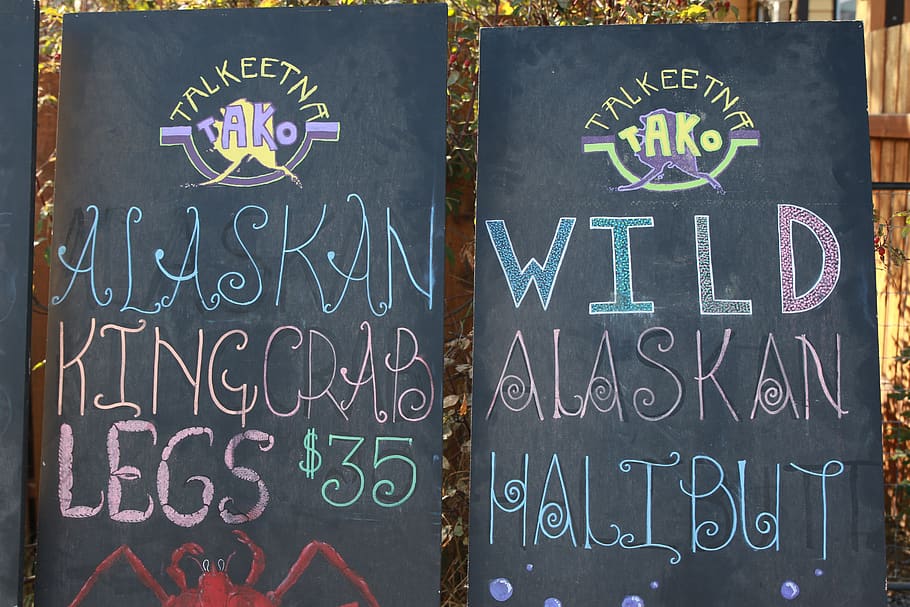 TALKEETNA
TAKO
ALASKAN
KING CRAB
LEGS $35
TALKEETNA
TAKO
WILD
ALASKAN
HALIBUT